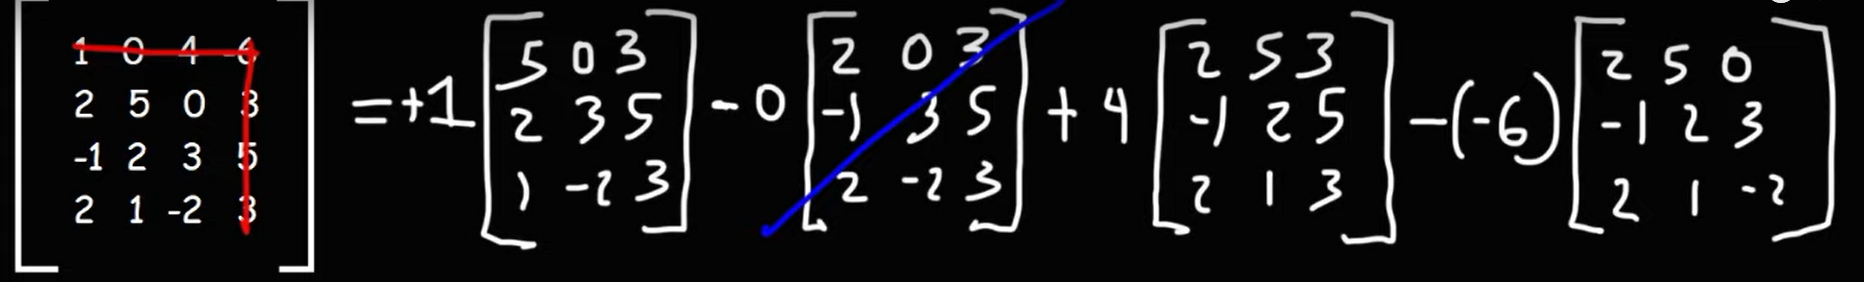 1 0 4 -6
2 5 0 3
-1 2 3 5
2 1 -2 3
= +1
5 0 3
2 3 5
1 -2 3
- 0
2 0 3
-1 3 5
2 -2 3
+ 4
2 5 3
-1 2 5
2 1 3
-(-6)
2 5 0
-1 2 3
2 1 -2